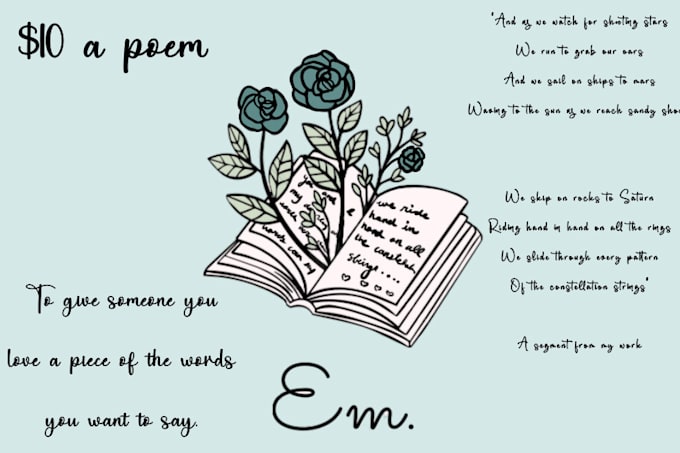 $10 a poem
"And as we watch for shooting stars
We run to grab our oars
And we sail on ships to mars
Waving to the sun as we reach sandy
We skip on rocks to Saturn
Riding hand in hand on all the rings
We slide through every pattern
Of the constellation strings"
A segment from my work
we ride
hand in
hand on all
the
strings....
To give someone you
love a piece of the words
you want to say.
Em.